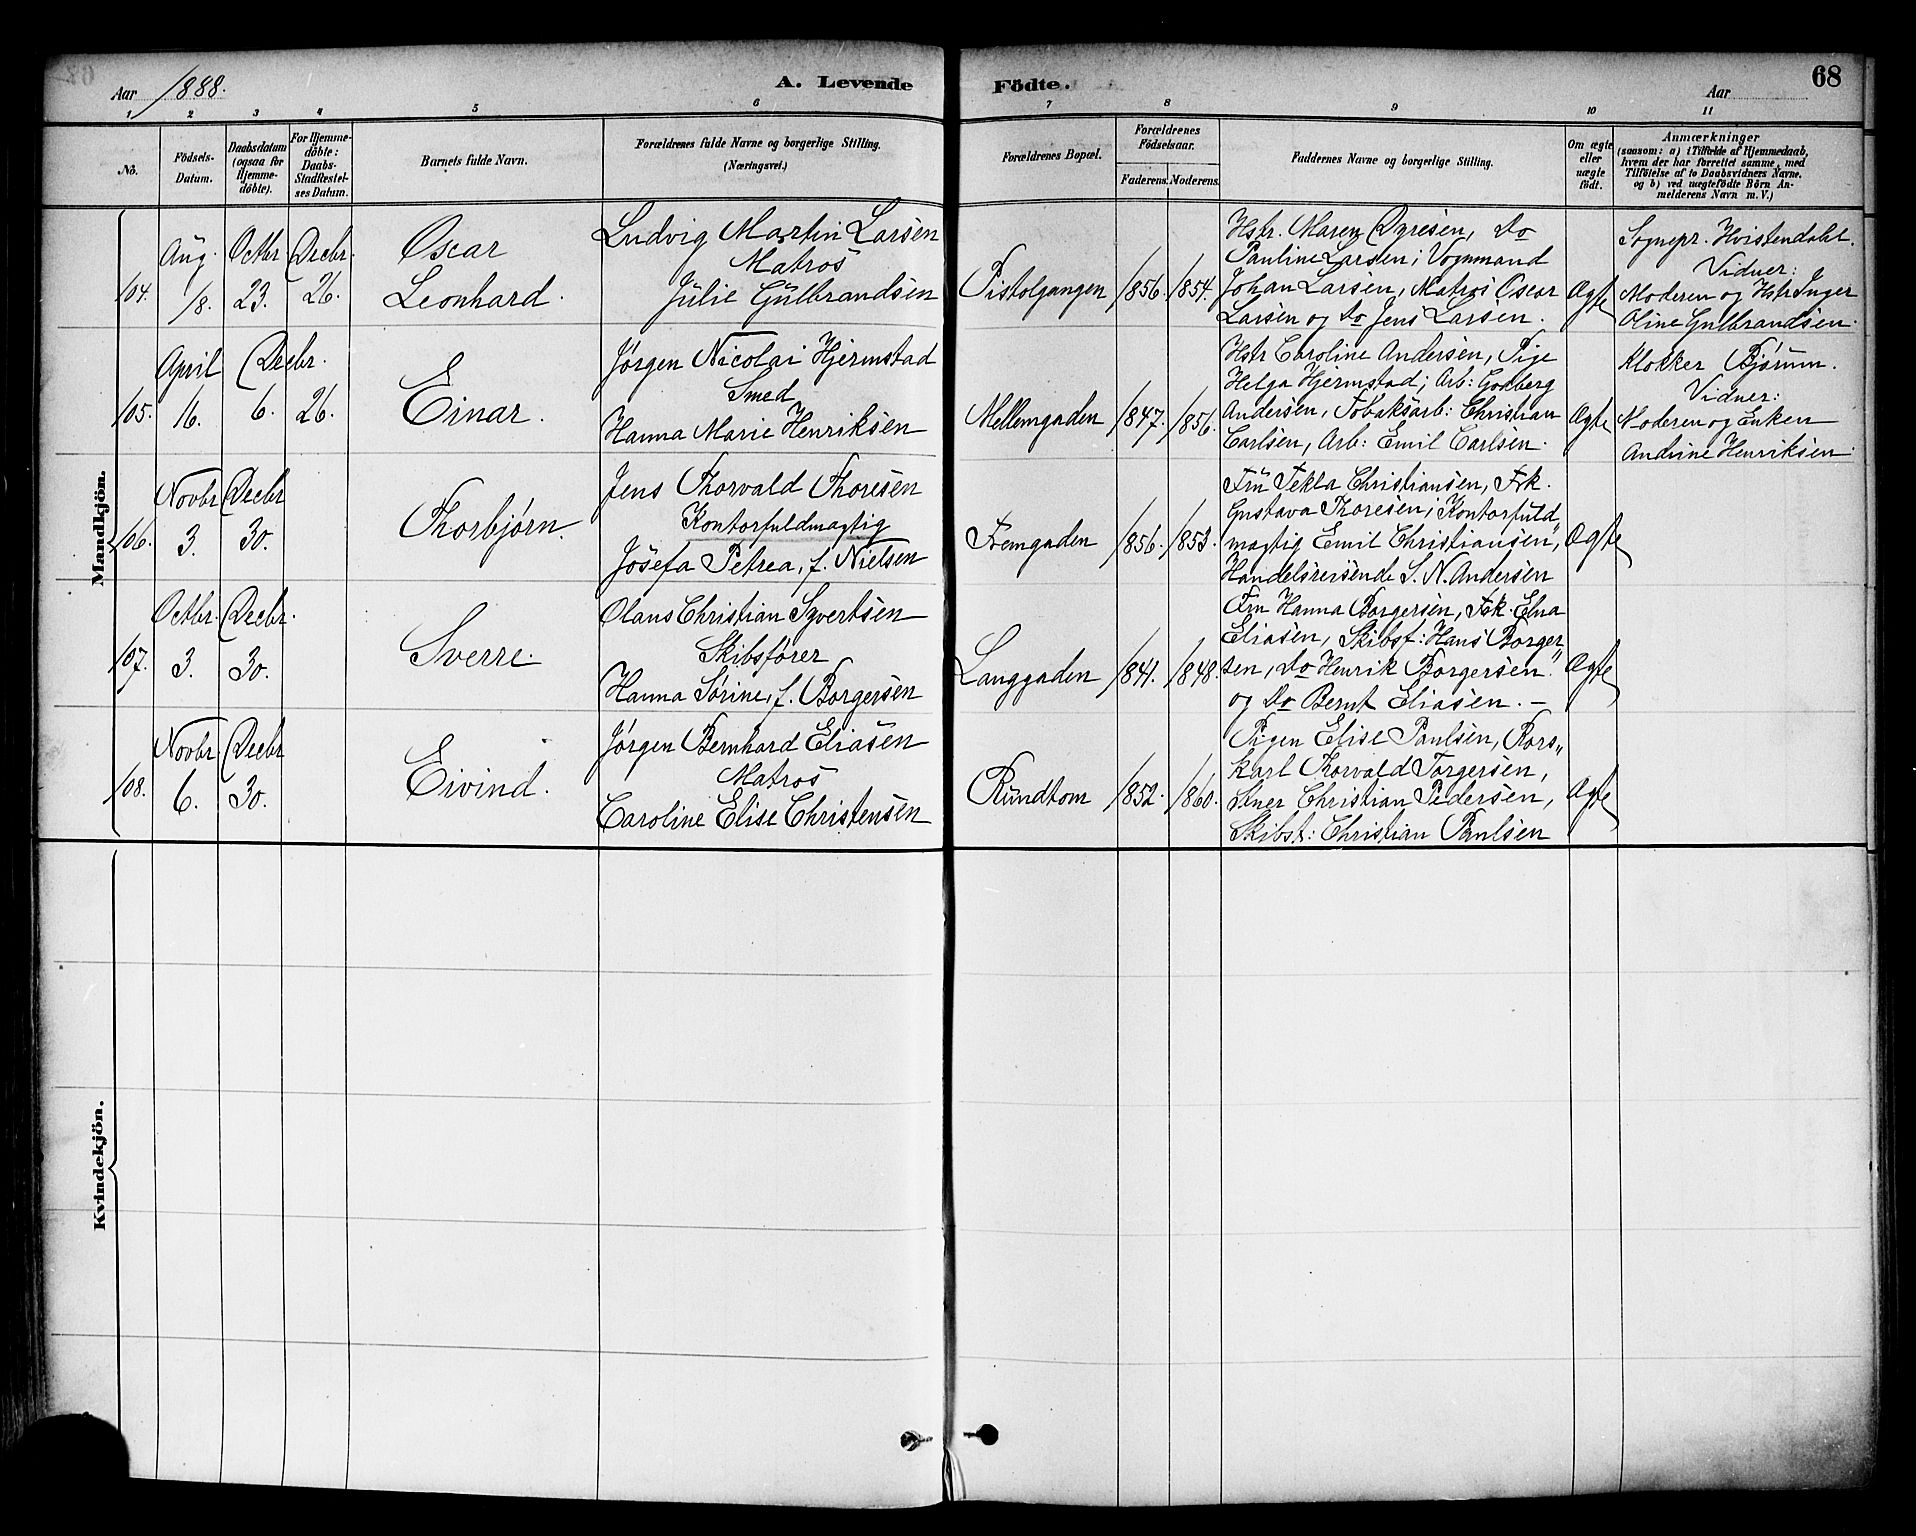 Aar 1888.
A. Levende Födte.
Aar
68
1 2 3 4 5 6 7 8 9 10 11
No.
Födsels-Datum.
Daabsdatum (ogsaa for Hjemmedöbte).
For Hjemmedöbte: Daabs-Stadfæstelses Datum.
Barnets fulde Navn.
Forældrenes fulde Navne og borgerlige Stilling. (Næringsvei.)
Forældrenes Bopæl.
Forældrenes Födselsaar.
Faderens. Moderens.
Faddernes Navne og borgerlige Stilling.
Om ægte eller uægte födt.
Anmærkninger
(saasom: a) i Tilfælde af Hjemmedaab,
hvem der har forrettet samme, med
Tilföielse af to Daabsvidners Navne.
og b) ved uægtefödte Börn An-
melderens Navn m. V.)
Mandkjön.
104.
Aug. 18.
Octbr 23.
Decbr. 26.
Oscar
Leonhard.
Ludvig Martin Larsen
Matros
Julie Gulbrandsen
Pistolgangen
1856. 1854.
Hstr. Maren Dyresen, Do
Pauline Larsen; Vognmand
Johan Larsen, Matros Oscar
Larsen og Do Jens Larsen.
Ægte
Sognepr. Hvistendahl.
Vidner:
Moderen og Hstr Inger
Oline Gulbrandsen.
105.
April 16.
Decbr. 6.
26.
Einar.
Jørgen Nicolai Hjermstad
Smed
Hanna Marie Henriksen
Mellemgaden
1847. 1856.
Hstr Caroline Andersen, Pige
Helga Hjermstad; Arb: Gotberg
Andersen, Tobaksarb: Christian
Carlsen, Arb: Emil Carlsen.
Ægte
Klokker Bjørum.
Vidner:
Moderen og Enken
Andrine Henriksen.
106.
Novbr 3.
Decbr 30.
Thorbjørn.
Jens Thorvald Thoresen
Kontorfuldmægtig
Josefa Petrea, f. Nielsen
Femgaden
1856. 1853.
Fru Tekla Christiansen, Frk.
Gustava Thoresen; Kontorfuld„
mægtig Emil Christiansen,
Handelsreisende S. N. Andersen
Ægte
107.
Octbr. 3.
Decbr. 30.
Sverre.
Olaus Christian Syvertsen
Skibsfører
Hanna Sørine, f. Borgersen
Langgaden
1841. 1848.
Fru Hanna Borgersen, Frk. Elna
Eliasen, Skibsf: Hans Borger„
sen, Do Henrik Borgersen
og Do Bernt Eliasen. –
Ægte
108.
Novbr. 6.
Decbr 30.
Eivind.
Jørgen Bernhard Eliasen
Matros
Caroline Elise Christensen
Rundtom
1852. 1860.
Pigen Elise Paulsen, Rors„
karl Thorvald Torgersen,
Christian Pedersen,
Skibst: Christian Paulsen
Ægte
Kvindekjön.